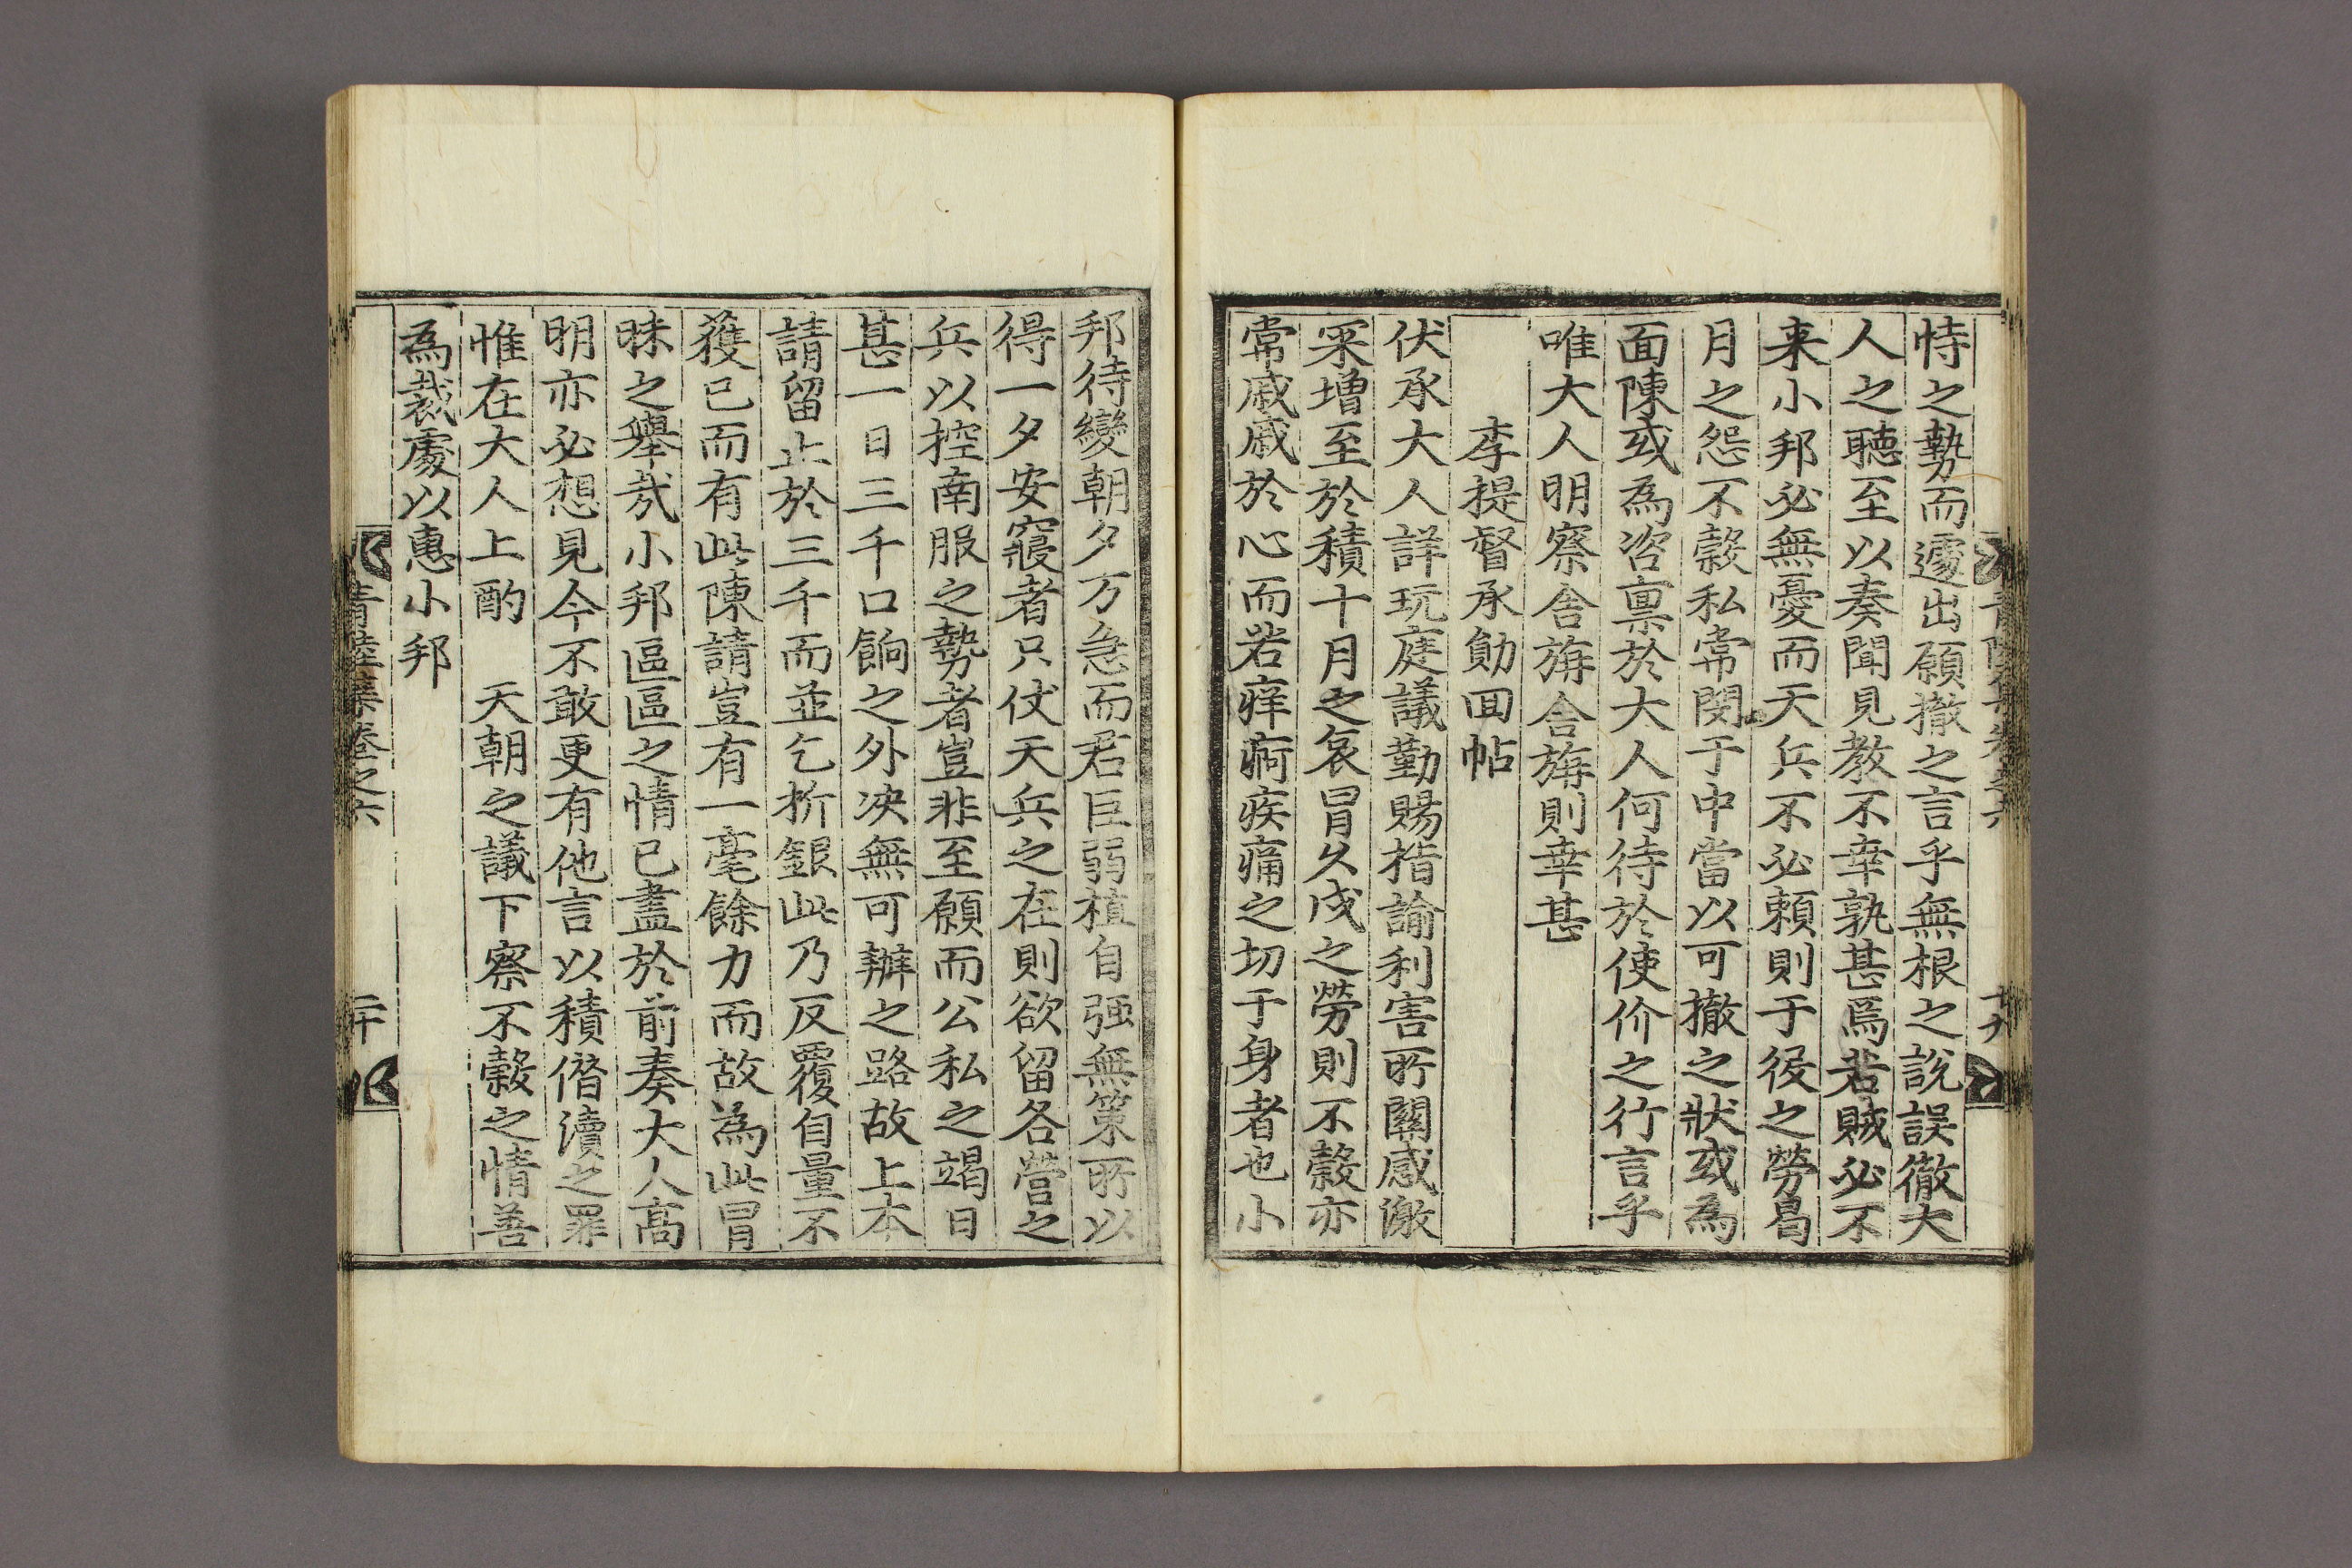 恃之勢而遽出願撤之言乎無根之說誤徹大
人之聽至以奏聞見教不幸孰甚焉若賊必不
来小邦必無憂而天兵不必賴則于役之勞曷
月之怨不穀私常閔于中當以可撤之狀或為
面陳或為咨禀於大人何待於使价之行言乎
唯大人明察舍旃舍旃則幸甚
李提督承勛回帖
伏承大人詳玩庭議勤賜指諭利害所關感激
采增至於積十月之哀冒久戍之勞則不穀亦
常戚戚於心而若痒痾疾痛之切于身者也小
邦待變朝夕万急而君臣弱植自强無策所以
得一夕安寢者只仗天兵之在則欲留各營之
兵以控南服之勢者豈非至願而公私之竭日
甚一日三千口餉之外决無可辦之路故上本
請留止於三千而並乞折銀此乃反覆自量不
獲已而有此陳請豈有一毫餘力而故為此冒
昧之舉㢤小邦區區之情已盡於前奏大人高
明亦必想見今不敢更有他言以積僭瀆之罪
惟在大人上酌　天朝之議下察不穀之情善
為裁處以惠小邦
青陸集卷之六
二十